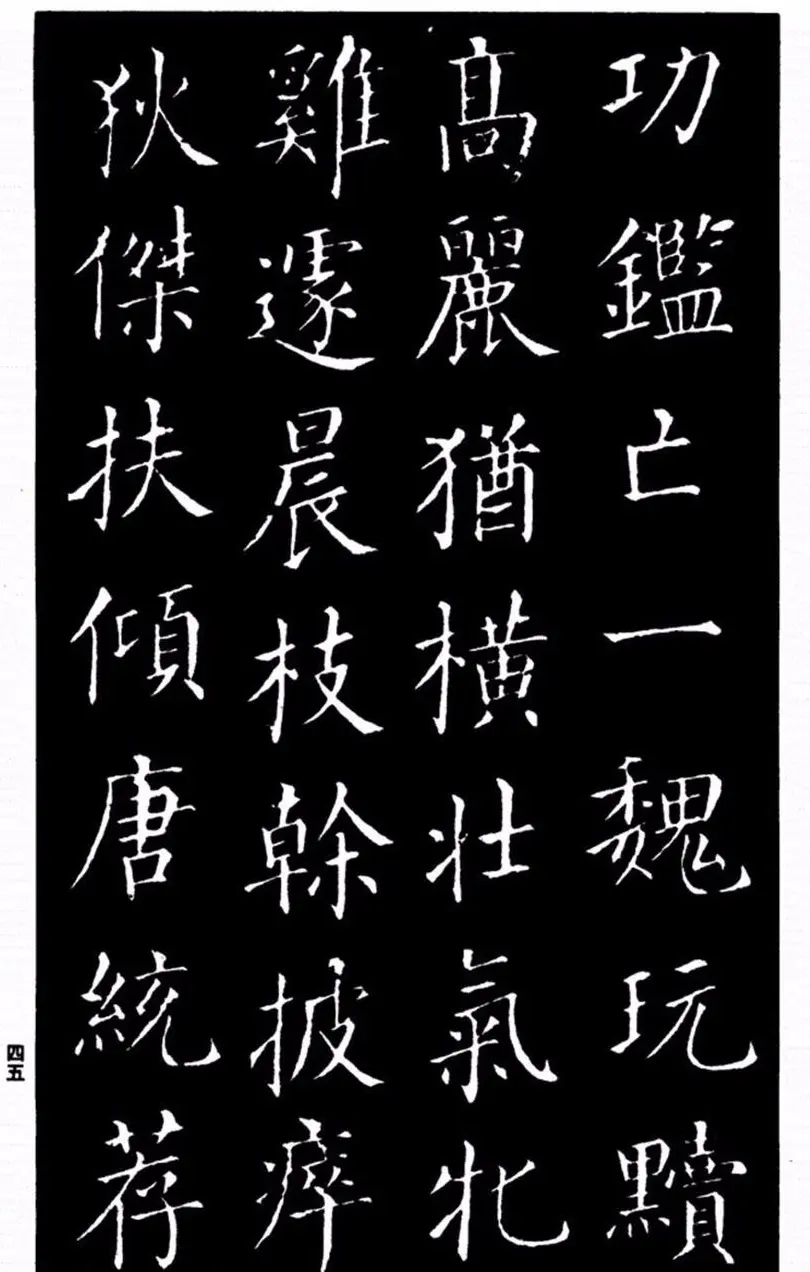 功鑑亡一魏玩黷
高麗猶橫壯氣牝
雞遽晨枝幹披瘁
狄傑扶傾唐統荐
四五